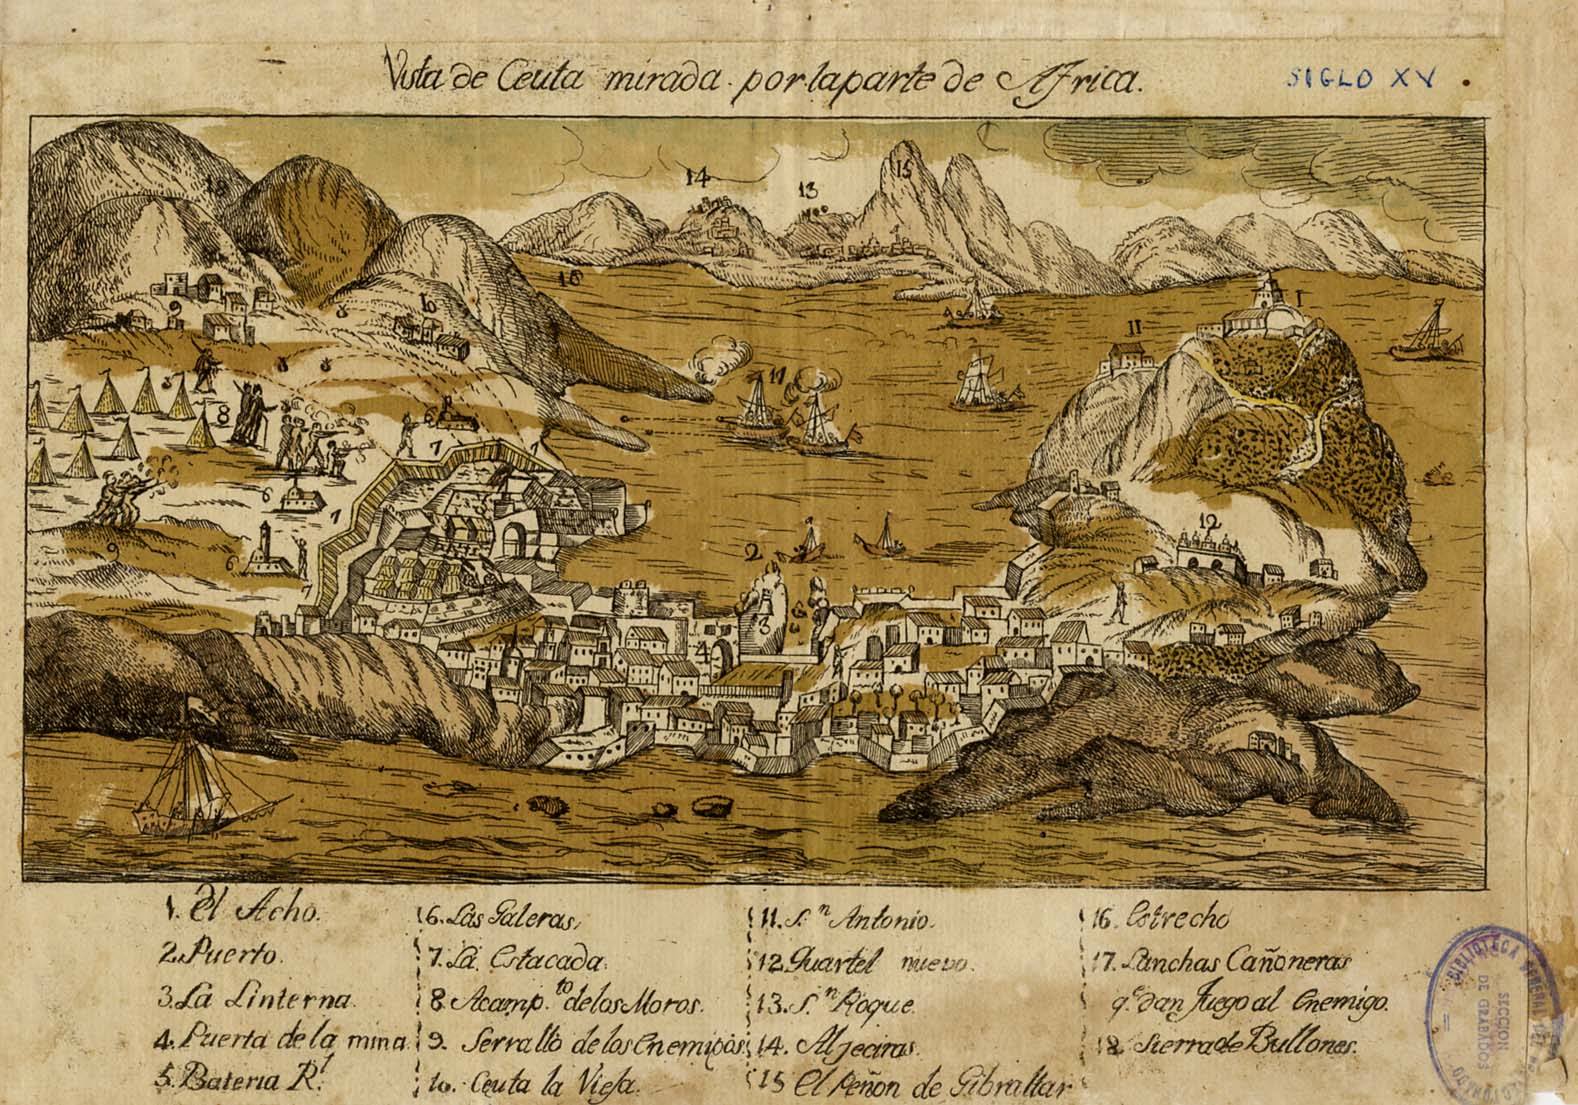 Vista de Ceuta mirada por la parte de Africa.
SIGLO XV
1. El Acho.
2. Puerto.
3. La Linterna.
4. Puerta de la mina
5. Bateria Rl.
6. Las Galeras.
7. La Estacada.
8 Acamp.to de los Moros.
9. Serrallo de los Enemigos
10. Ceuta la Vieja.
11. S.n Antonio.
12 Quartel nuevo.
13. S.n Roque.
14. Aljeciras.
15 El Peñon de Gibraltar
16. Estrecho
17. Lanchas Cañoneras
q.e dan fuego al Enemigo.
18. Sierra de Bullones.
18
14
13
15
16
9
8
10
1
11
8
8
8
17
8
6
7
7
6
7
9
6
7
2
12
3
5
4
BIBLIOTECA
SECCION
DE GRABADOS